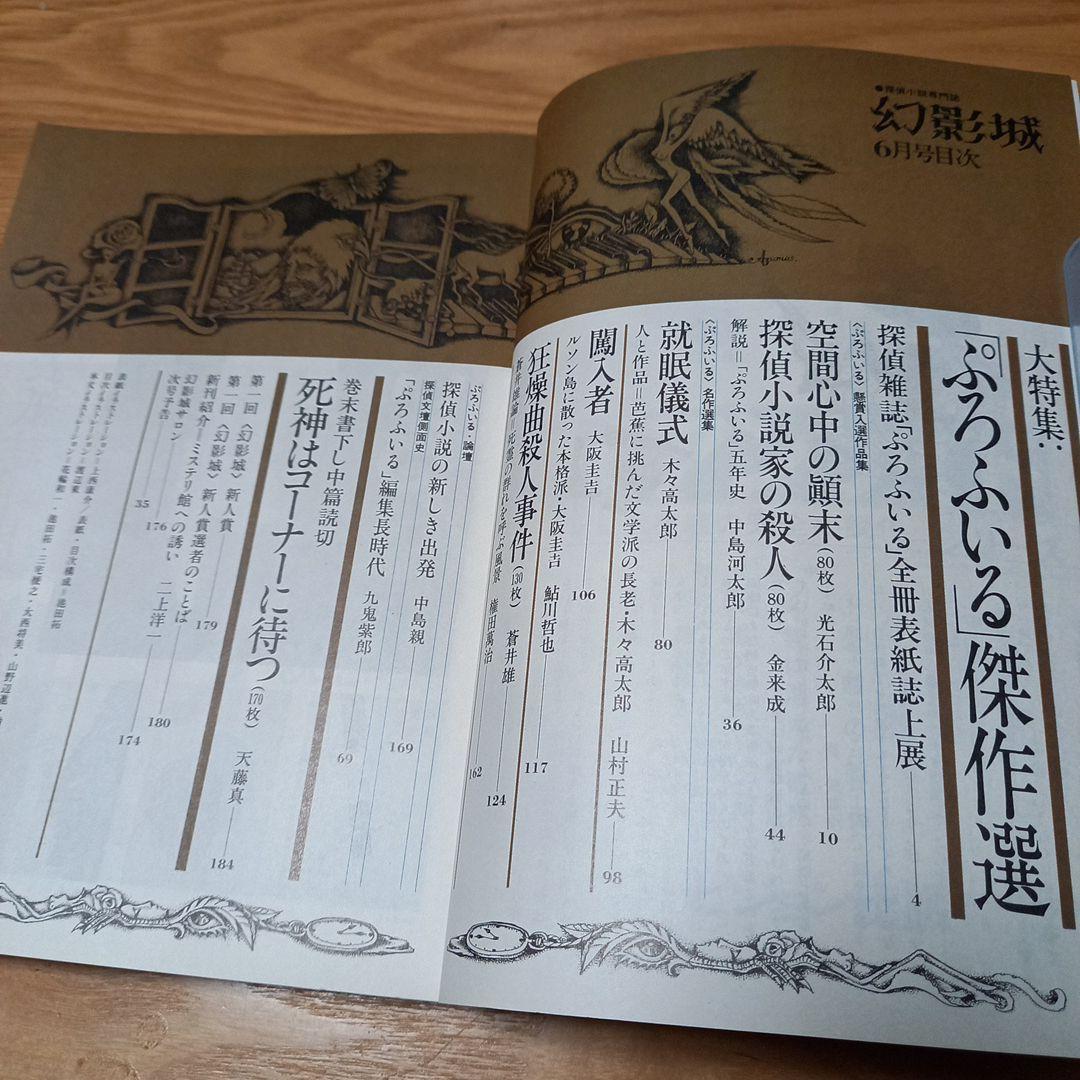 ●探偵小説専門誌
幻影城
6月号目次
大特集:
「ぷろふいる」傑作選
探偵雑誌「ぷろふいる」全冊表紙誌上展 4
〈ぷろふいる〉懸賞入選作品集
空間心中の顚末(80枚) 光石介太郎 10
探偵小説家の殺人(80枚) 金来成 44
解説=「ぷろふいる」五年史 中島河太郎 36
〈ぷろふいる〉名作選集
就眠儀式 木々高太郎 80
人と作品=芭蕉に挑んだ文学派の長老・木々高太郎 山村正夫 98
闖入者 大阪圭吉 106
ルソン島に散った本格派・大阪圭吉 鮎川哲也 117
狂燥曲殺人事件(130枚) 蒼井雄 124
蒼井雄論=死霊の群れを呼ぶ風景 権田萬治 162
ぷろふいる・論壇
探偵小説の新しき出発 中島親 169
探偵文壇側面史
「ぷろふいる」編集長時代 九鬼紫郎 69
巻末書下し中篇読切
死神はコーナーに待つ(170枚) 天藤真 184
第一回〈幻影城〉新人賞
第一回〈幻影城〉新人賞選者のことば 179
新刊紹介=ミステリ館への誘い 二上洋一 180
幻影城サロン 176
次号予告 35
174
表紙イラストレーション=上西康介/表紙・目次構成=池田拓
目次イラストレーション=渡辺東
本文イラストレーション=花輪和一・池田拓・三宅榎之・大西将美・山野辺進
Azumas.